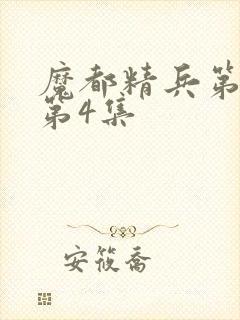 魔都精兵第
第4集
安筱乔